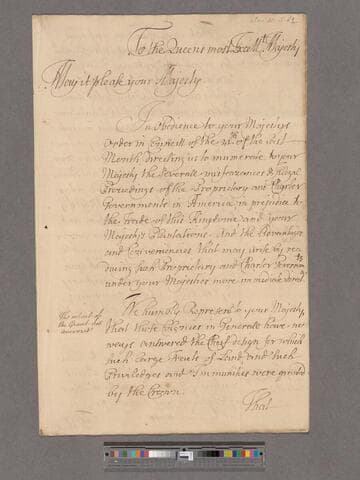 To the Queens most Excell.t Majesty
May it please your Majesty
In obedience to your Majesties
Order in Councill of the of the last
Month directing us to enumerate to your
Majesty the severall misfeazances & illegal
Proceedings of the Proprietary and Charter
Governments in America in prejudice to
the trade of this Kingdome and your
Majesty's Plantations. And the Advantages
and Conveniencies that may arise by re-
duceing such Proprietary and Charter Governm.ts
under your Majesties more immediate
We humbly Represent to your Majesty,
that those Colonies in Generall have no
ways answered the Chief design for which
such large Tracts of Land, and such
Priviledges and Immunities were granted
by the Crown.
The intent of
the Grant not
answered
That